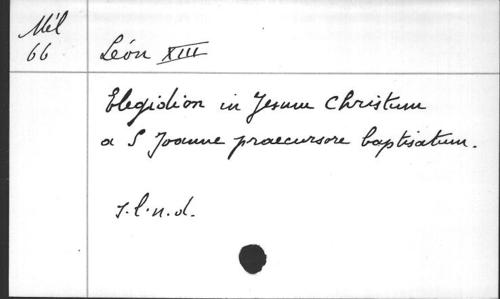 Mél
66
Léon XIII
Elegidion in Jesum Christum
a S Joanne praecursore baptisatum.
s.l.n.d.